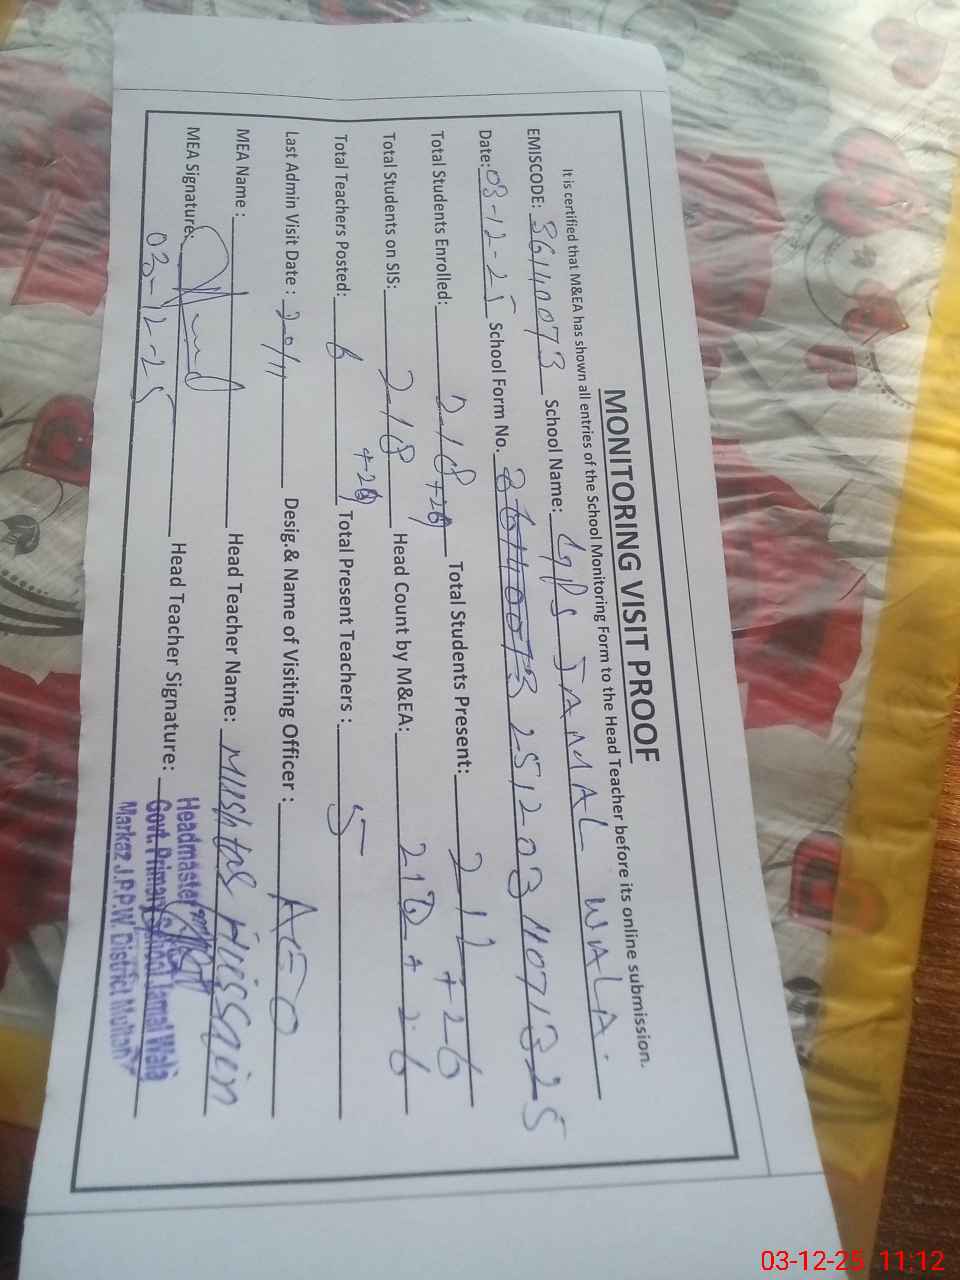 MONITORING VISIT PROOF
It is certified that M&EA has shown all entries of the School Monitoring Form to the Head Teacher before its online submission.
EMISCODE: 36140073 School Name: GPS JAMAL WALA.
Date: 03-12-25 School Form No. 36140073 25120311071325
Total Students Enrolled: 218+26 Total Students Present: 212+26
Total Students on SIS: 218 +26 Head Count by M&EA: 212+26
Total Teachers Posted: 6 Total Present Teachers: 5
Last Admin Visit Date: 20/11 Desig.& Name of Visiting Officer: AEO
MEA Name: Head Teacher Name: Mushtaq Hussain
MEA Signature: Head Teacher Signature:
03-12-25
Headmaster
Govt. Primary School Jamal Wala
Markaz J.P.P.W. District Multan
03-12-25 11:12